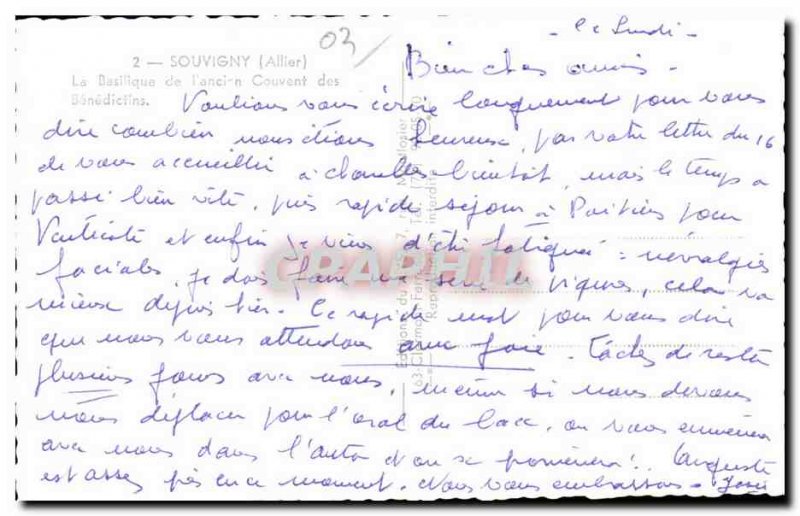 03
Le Lundi -
2 — SOUVIGNY (Allier)
La Basilique de l'ancien Couvent des
Bénédictins.
Bien chers amis -
Voulions vous écrire longuement pour vous
dire combien nous étions heureux, par votre lettre du 16
de vous accueillir à bientôt, mais le temps a
passé bien vite, puis rapide séjour à Poitiers pour
et enfin je viens d'être fatiguée : névralgies
faciales, je dois faire une série de piqures, cela va
mieux depuis hier. Ce rapide mot pour vous dire
que nous vous attendons avec joie. Tâchez de rester
plusieurs jours avec nous, même si nous devons
nous déplacer pour l'oral du bac, on vous emmènera
avec nous dans l'auto et on se promènera !. Auguste
est assez pris en ce moment. Nous vous embrassons -
CRAPHIL